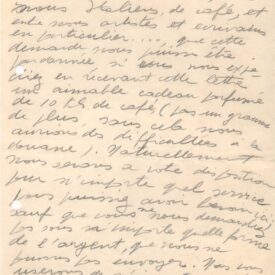 nous Italiens, de café, et
entre nous artistes et ecrivains
en particulier...., que cette
demande nous puisse être
pardonnée si vous nous expe
diez en recevant cette lettre
un aimable cadeau parfumé
de 10 KG de café (pas un gramme
de plus, sans cela nous
aurions des difficultées à la
douane). Naturellement
nous sensons a votre disposition
pour n'importe quel service
vous puissiez avoir besoin ici
sauf que vous ne nous demandiez
pas sous n'importe quelle forme
de l'argent, que nous ne
pouvons pas envoyer.